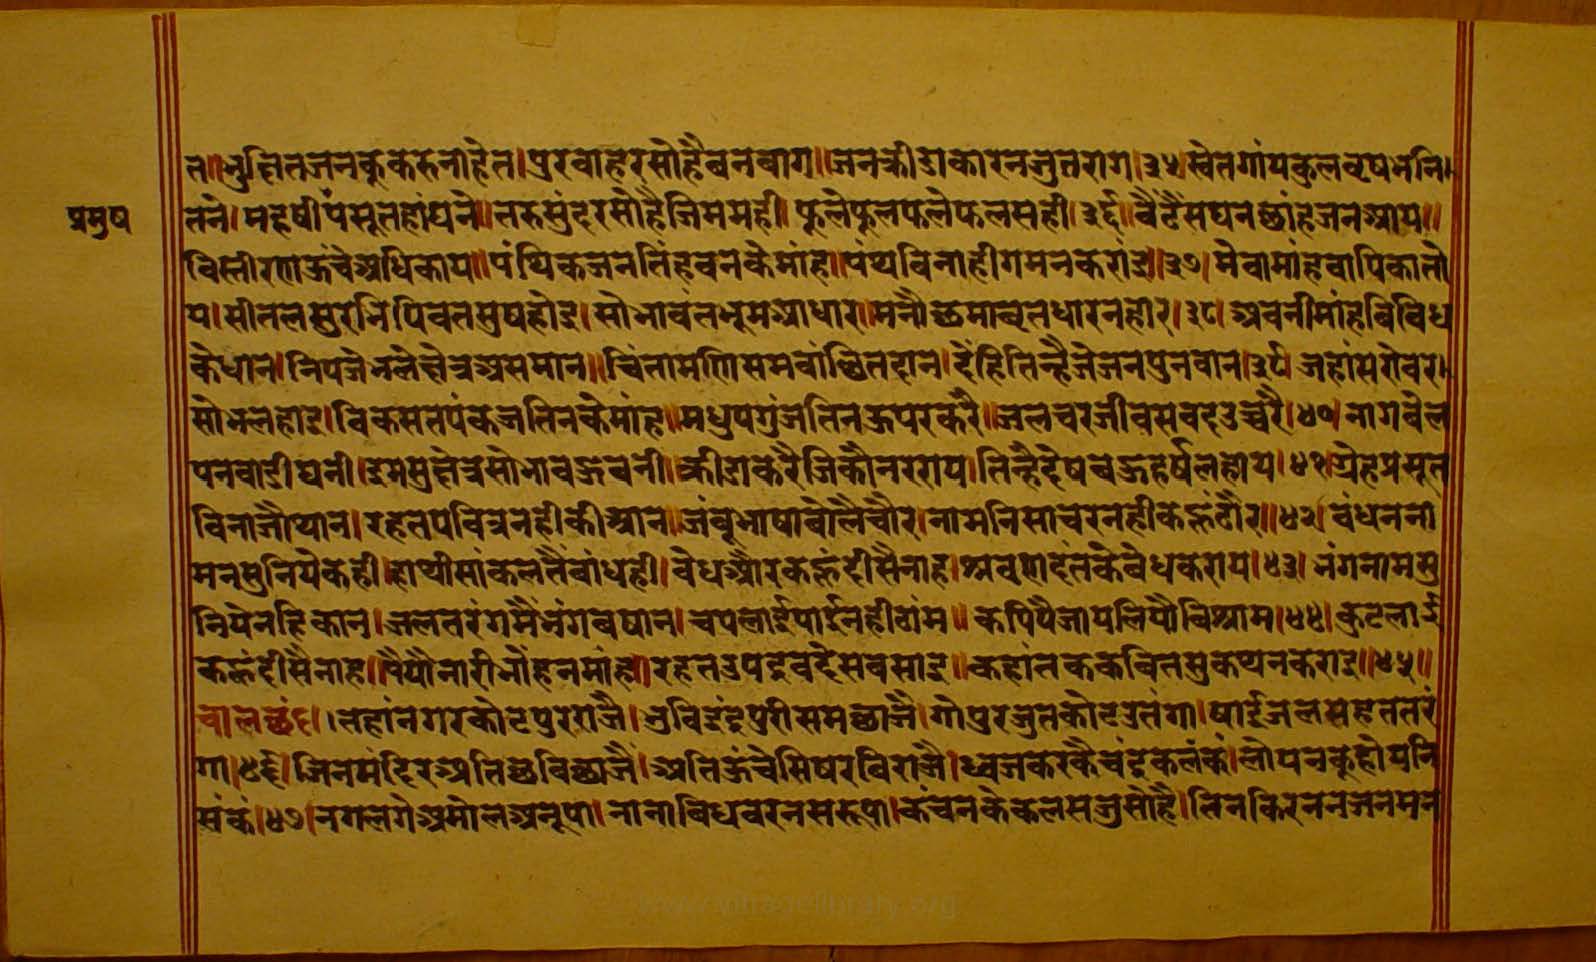 त॥भुंजितजनकुकरुनाहेत।पुरबाहरसोहैबनबाग॥जनक्रीडाकारनजुतराग।३५।स्वेतगांयकुलवृषभनि।
प्रमुष
तने।महषीपंसूतहांघने॥तरुसुंदरसोहैजिममही।फूलेफूलफलेफलसही।३६॥बैठैंसघनछांहजनआय॥
विस्तीरणऊंचेअधिकाय॥पंथिकजनतिंहवनकेमांह॥पंथविनाहीगमनकरांइ॥३७।मेवामांहवापिकातो
य।सीतलसुरभिपिवतसुषहोइ।सोभावंतभूमआधार।मनौछमाव्रतधारनहार।३८।अवनीमांहविविध
केधान।निपजेभलेक्षेत्रअसमान॥चिंतामणिसमवांछितदान।देंहितिन्हैजेजनपुनवान।३९।जहांसरोवर।
सोभलहाइ।विकसतपंकजतिनकेमांह।मधुपगुंजतिनऊपरकरै॥जलचरजीवसबदउच्चरै।४०।नागवेल
पनवाडीघनी।इमसुक्षेत्रसोभावऊवनी।क्रीडाकरैजिकौनरराय।तिन्हैदेषबऊहर्षलहाय।४१।ग्रेहप्रसूत
विनाजौथान।रहतपवित्रनहीकीआन।जंबूभाषाबोलैचौर।नामनिसाचरनहीकेऊंठौर॥४२।बंधनना
मनसुनियेकेही।हाथीसांकलतैंबांधही।वेधऔरकऊंदीसैनाह।श्रवणदंतकेवेधकराय।४३।भंगनामसु
नियेनहिकान।जलतरंगमैंभंगवषान।चपलाईपाईनहीठांम॥कपिपैजायलियौविश्राम।४४।कुटलाई
कऊंदीसैनाह॥पैयौनारीभौंहनमांह।रहतउपद्रवदेसबसाइ॥कहांतककवितसुकथनकराइ॥४५॥
चालछंद।।तहांनगरकोटपुरराजै।भुविइंद्रपुरीसमछाजै।गोपुरजुतकोटउतंगा।षाईजलसहततरं
गा।४६।जिनमंदिरअतिछविछाजैं।अतिऊंचेसिषरविराजै।ध्वजकरकैचंद्रकलंकं।लोपनकुहोयनि
संकं।४७।नगलगेअमोलअनूपा।नानाविधवरनसरूपा।कंचनकेकलसजुसोहै।तिनकिरननजनमन